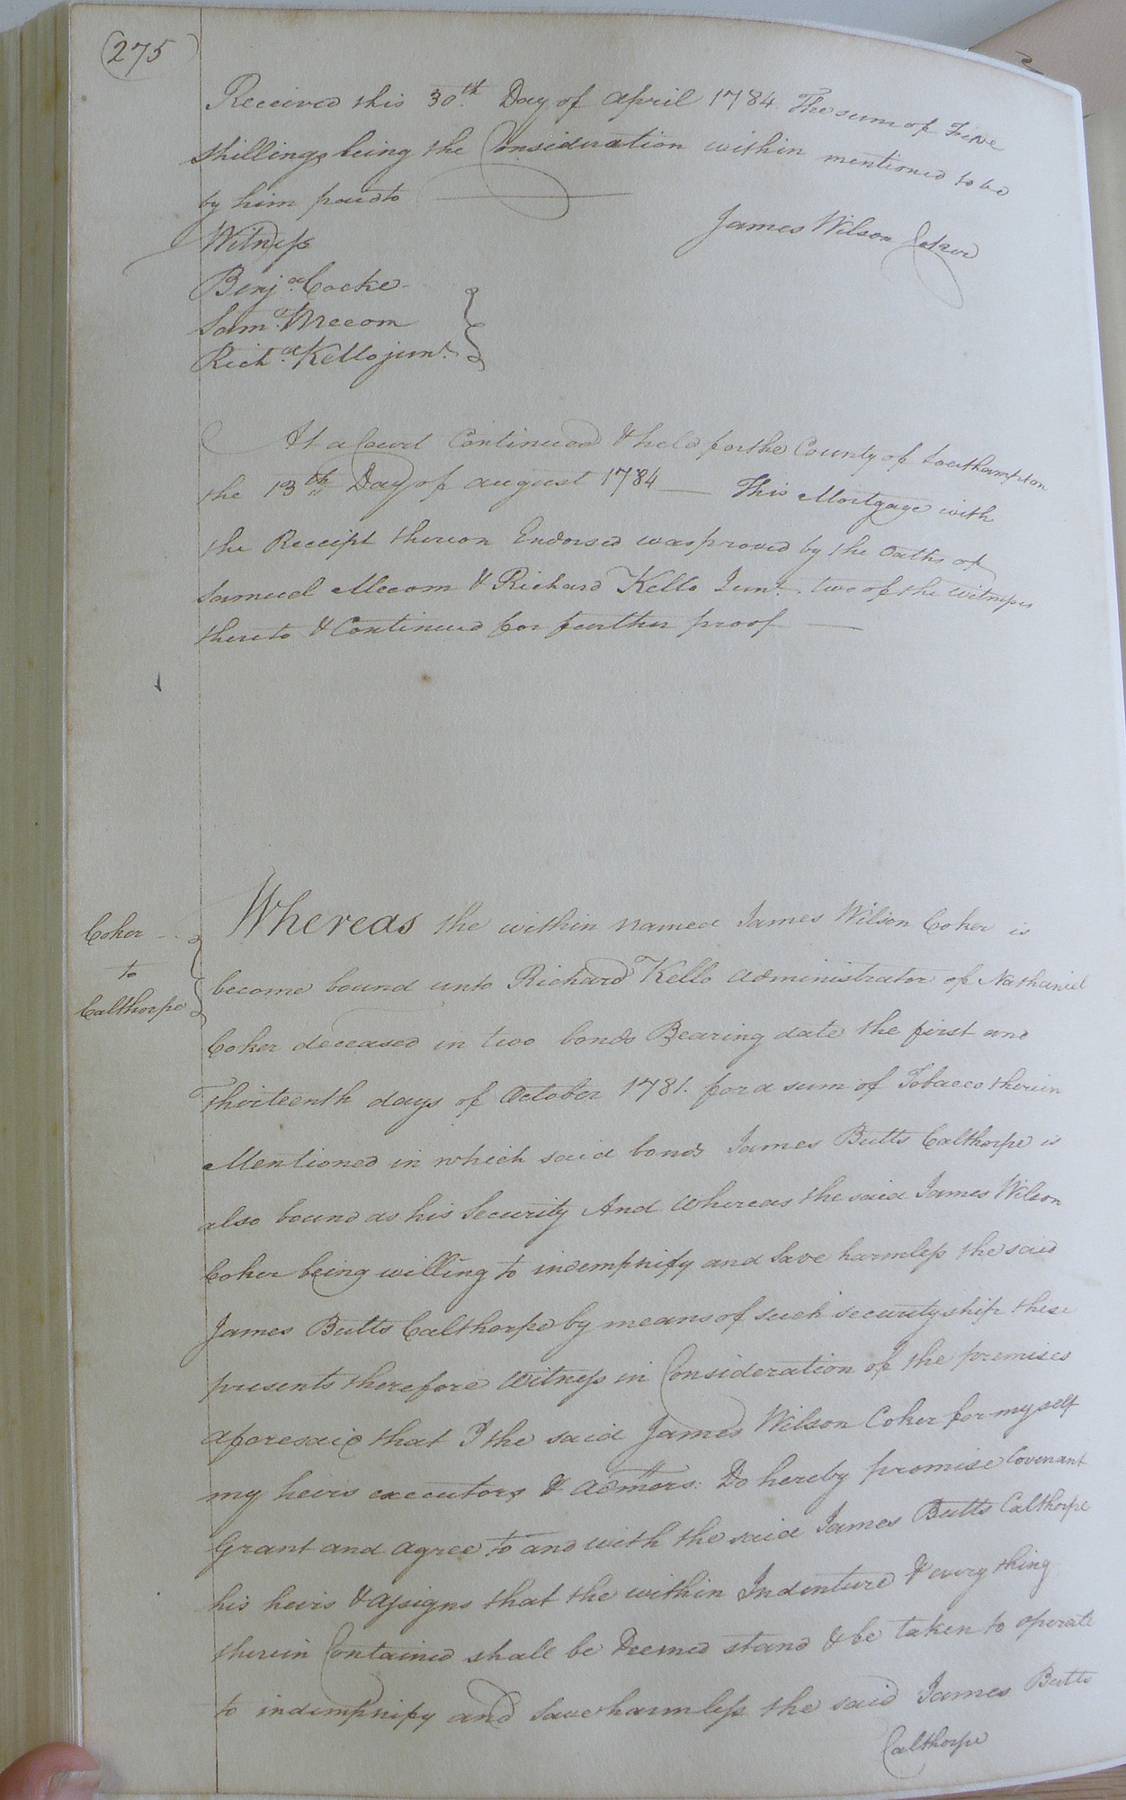 275
Received this 30th Day of April 1784 The sum of Five
shillings being the Consideration within mentioned to be
by him paid to
James Wilson Coker
Witness
Benja. Cocke
Saml. Mecom
Richd. Kello junr.
At a Court Continued & held for the County of Southampton
the 13th Day of august 1784 — This Mortgage with
the Receipt thereon Endorsed was proved by the Oaths of
Samuel Mecom & Richard Kello Junr. two of the witnesses
thereto & Continued for further proof —
Coker
to
Calthorpe
Whereas the within named James Wilson Coker is
become bound unto Richard Kello administrator of Nathaniel
Coker deceased in two bonds Bearing date the first and
Thirteenth days of October 1781. for a sum of Tobacco therein
Mentioned in which said bonds James Butts Calthorpe is
also bound as his Security And whereas the said James Wilson
Coker being willing to indempnify and Save harmless the said
James Butts Calthorpe by means of such securityship these
presents therefore Witness in Consideration of the premises
aforesaid that I the said James Wilson Coker for my self
my heirs executors & admors: Do hereby promise Covenant
Grant and agree to and with the said James Butts Calthorpe
his heirs & assigns that the within Indenture & every thing
therein Contained shall be Deemed stand & be taken to operate
to indempnify and save harmless the said James Butts
Calthorpe